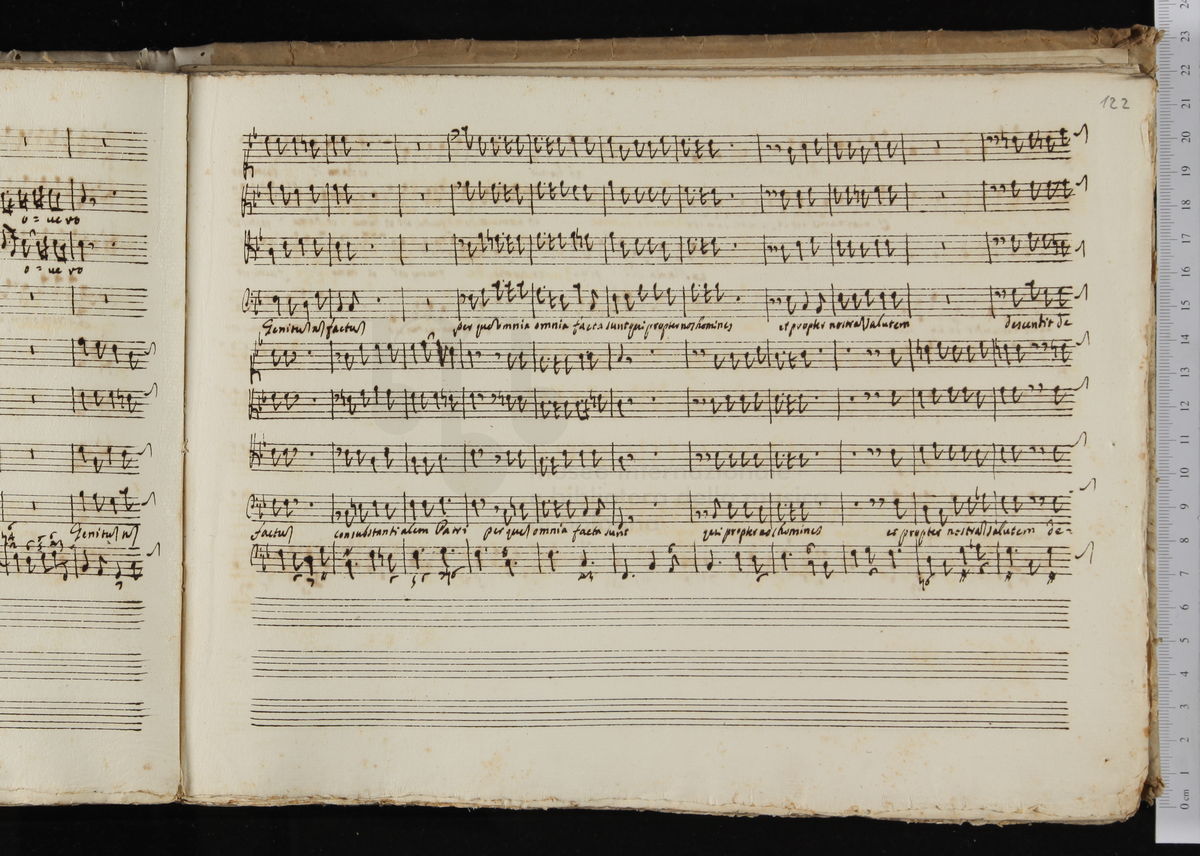 122
o = ue ro
o = ue ro
Genitus
Genitus factus
per quem omnia omnia facta sunt qui propter nos homines
et propter nostram salutem
descendit de
factus
consubstantialem Patri
per quem omnia facta sunt
qui propter nos homines
et propter nostram salutem de-
Museo internazionale
biblioteca della musica
0 cm 1 2 3 4 5 6 7 8 9 10 11 12 13 14 15 16 17 18 19 20 21 22 23 24